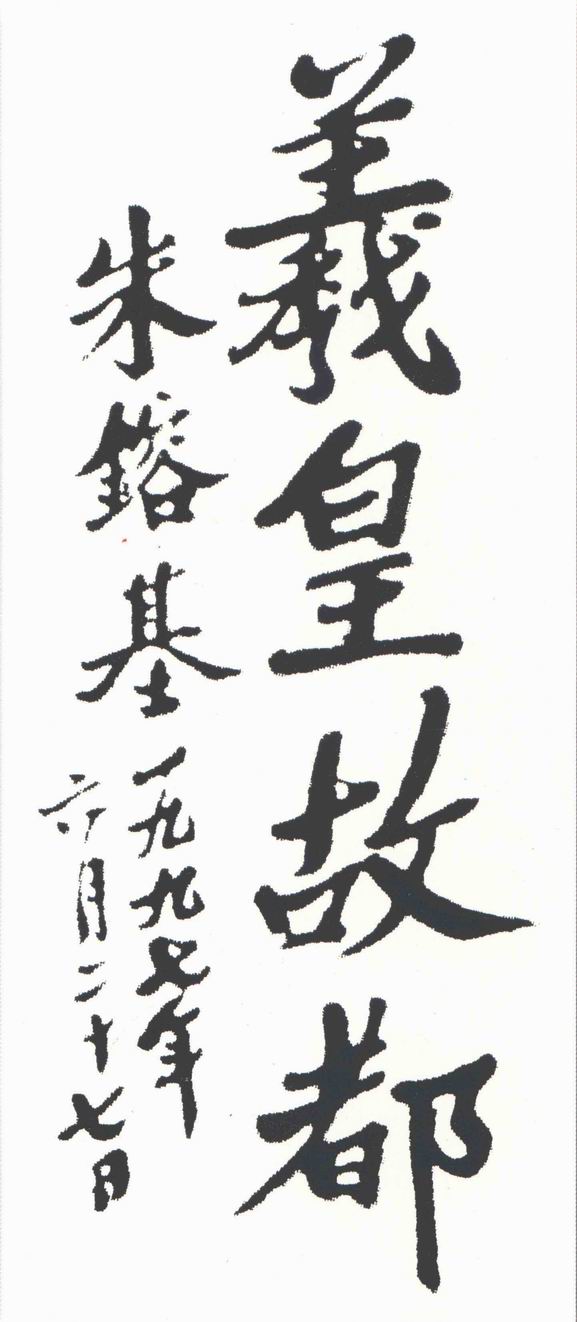 羲皇故都
朱鎔基一九九七年
六月二十七日